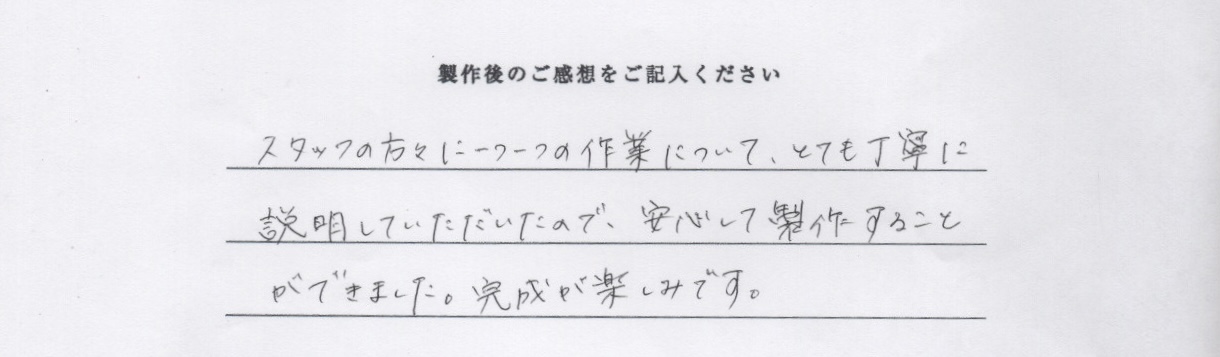 製作後のご感想をご記入ください
スタッフの方々に一つ一つの作業について、とても丁寧に
説明していただいたので、安心して製作すること
ができました。完成が楽しみです。